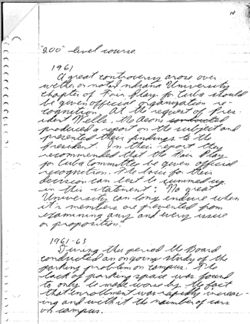 "200" level course
1961
A great controversy arose over
wether or not Indiana University
chapter of Fair Play for Cuba should
be given official organization re-
cognition. At the request of Pres-
ident Wells, the Deans conducted
produced a report on the subject and
presented their findings to the
president. In their report they
recommended that the Fair Play
for Cuba Committee be given official
recognition. The basis for their
decision can best be summed up
in this statement; "No great
University can long endure when
it's members are prevented from
examining any and every issue
or proposition."
1961-63
During this period the Board
conducted an ongoing study of the
parking problem on campus. The
lack of parking space was found
to only be made worse by the fact
that enrollment was rapidly increas-
ing and with it the number of cars
on campus.